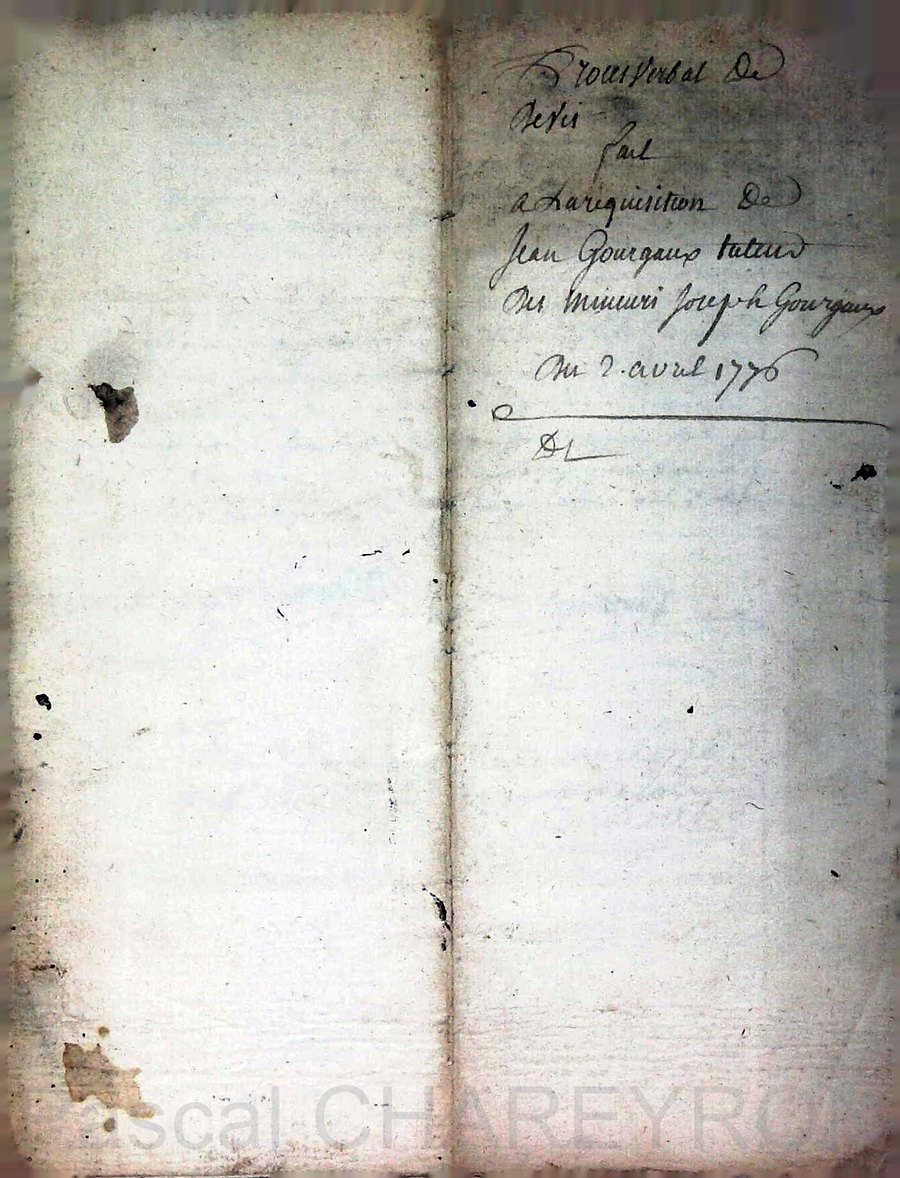 Procesverbal De
Devis
fait
a Larequisition De
Jean Gourgaux tuteur
Des mineurs Joseph Gourgaux
Du 2. avril 1776
DL
Pascal CHAREYRON